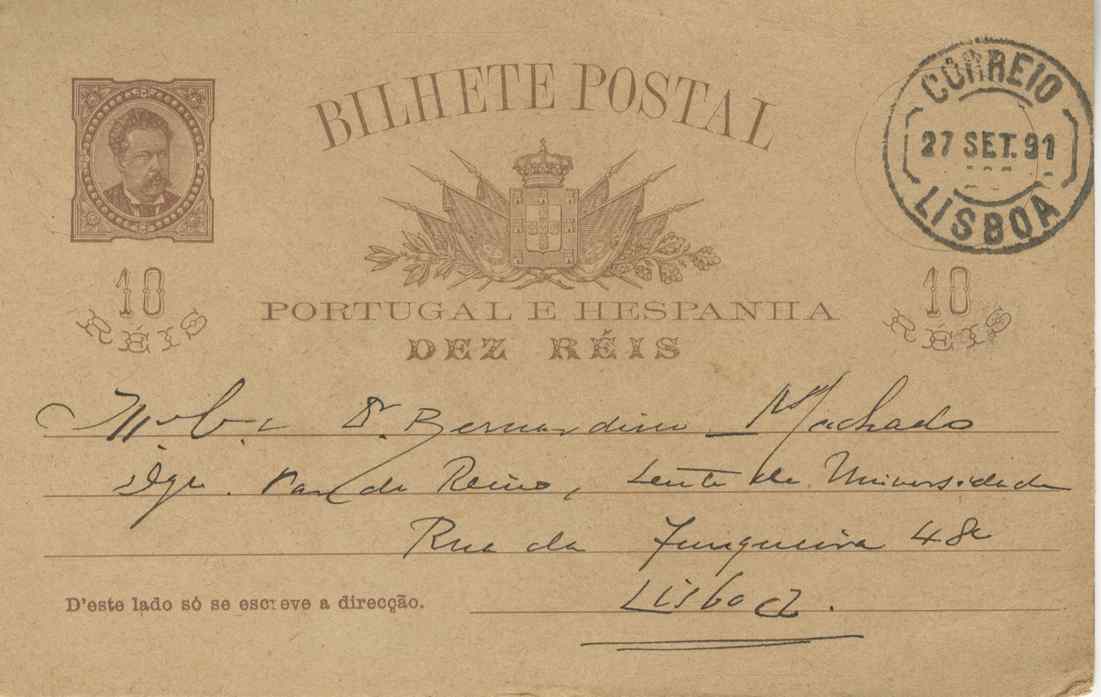 BILHETE POSTAL
CORREIO
27 SET. 91
LISBOA
10
RÉIS
10
RÉIS
PORTUGAL E HESPANHA
DEZ RÉIS
D. Bernardino Machado
Par do Reino, Lente da Universidade
Rua da Junqueira 48
D'este lado só se escreve a direcção.
Lisboa.